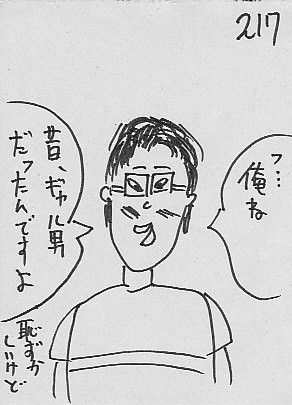 217
フ…
俺ね
昔、ギャル男
だったんですよ
恥ずか
しいけど